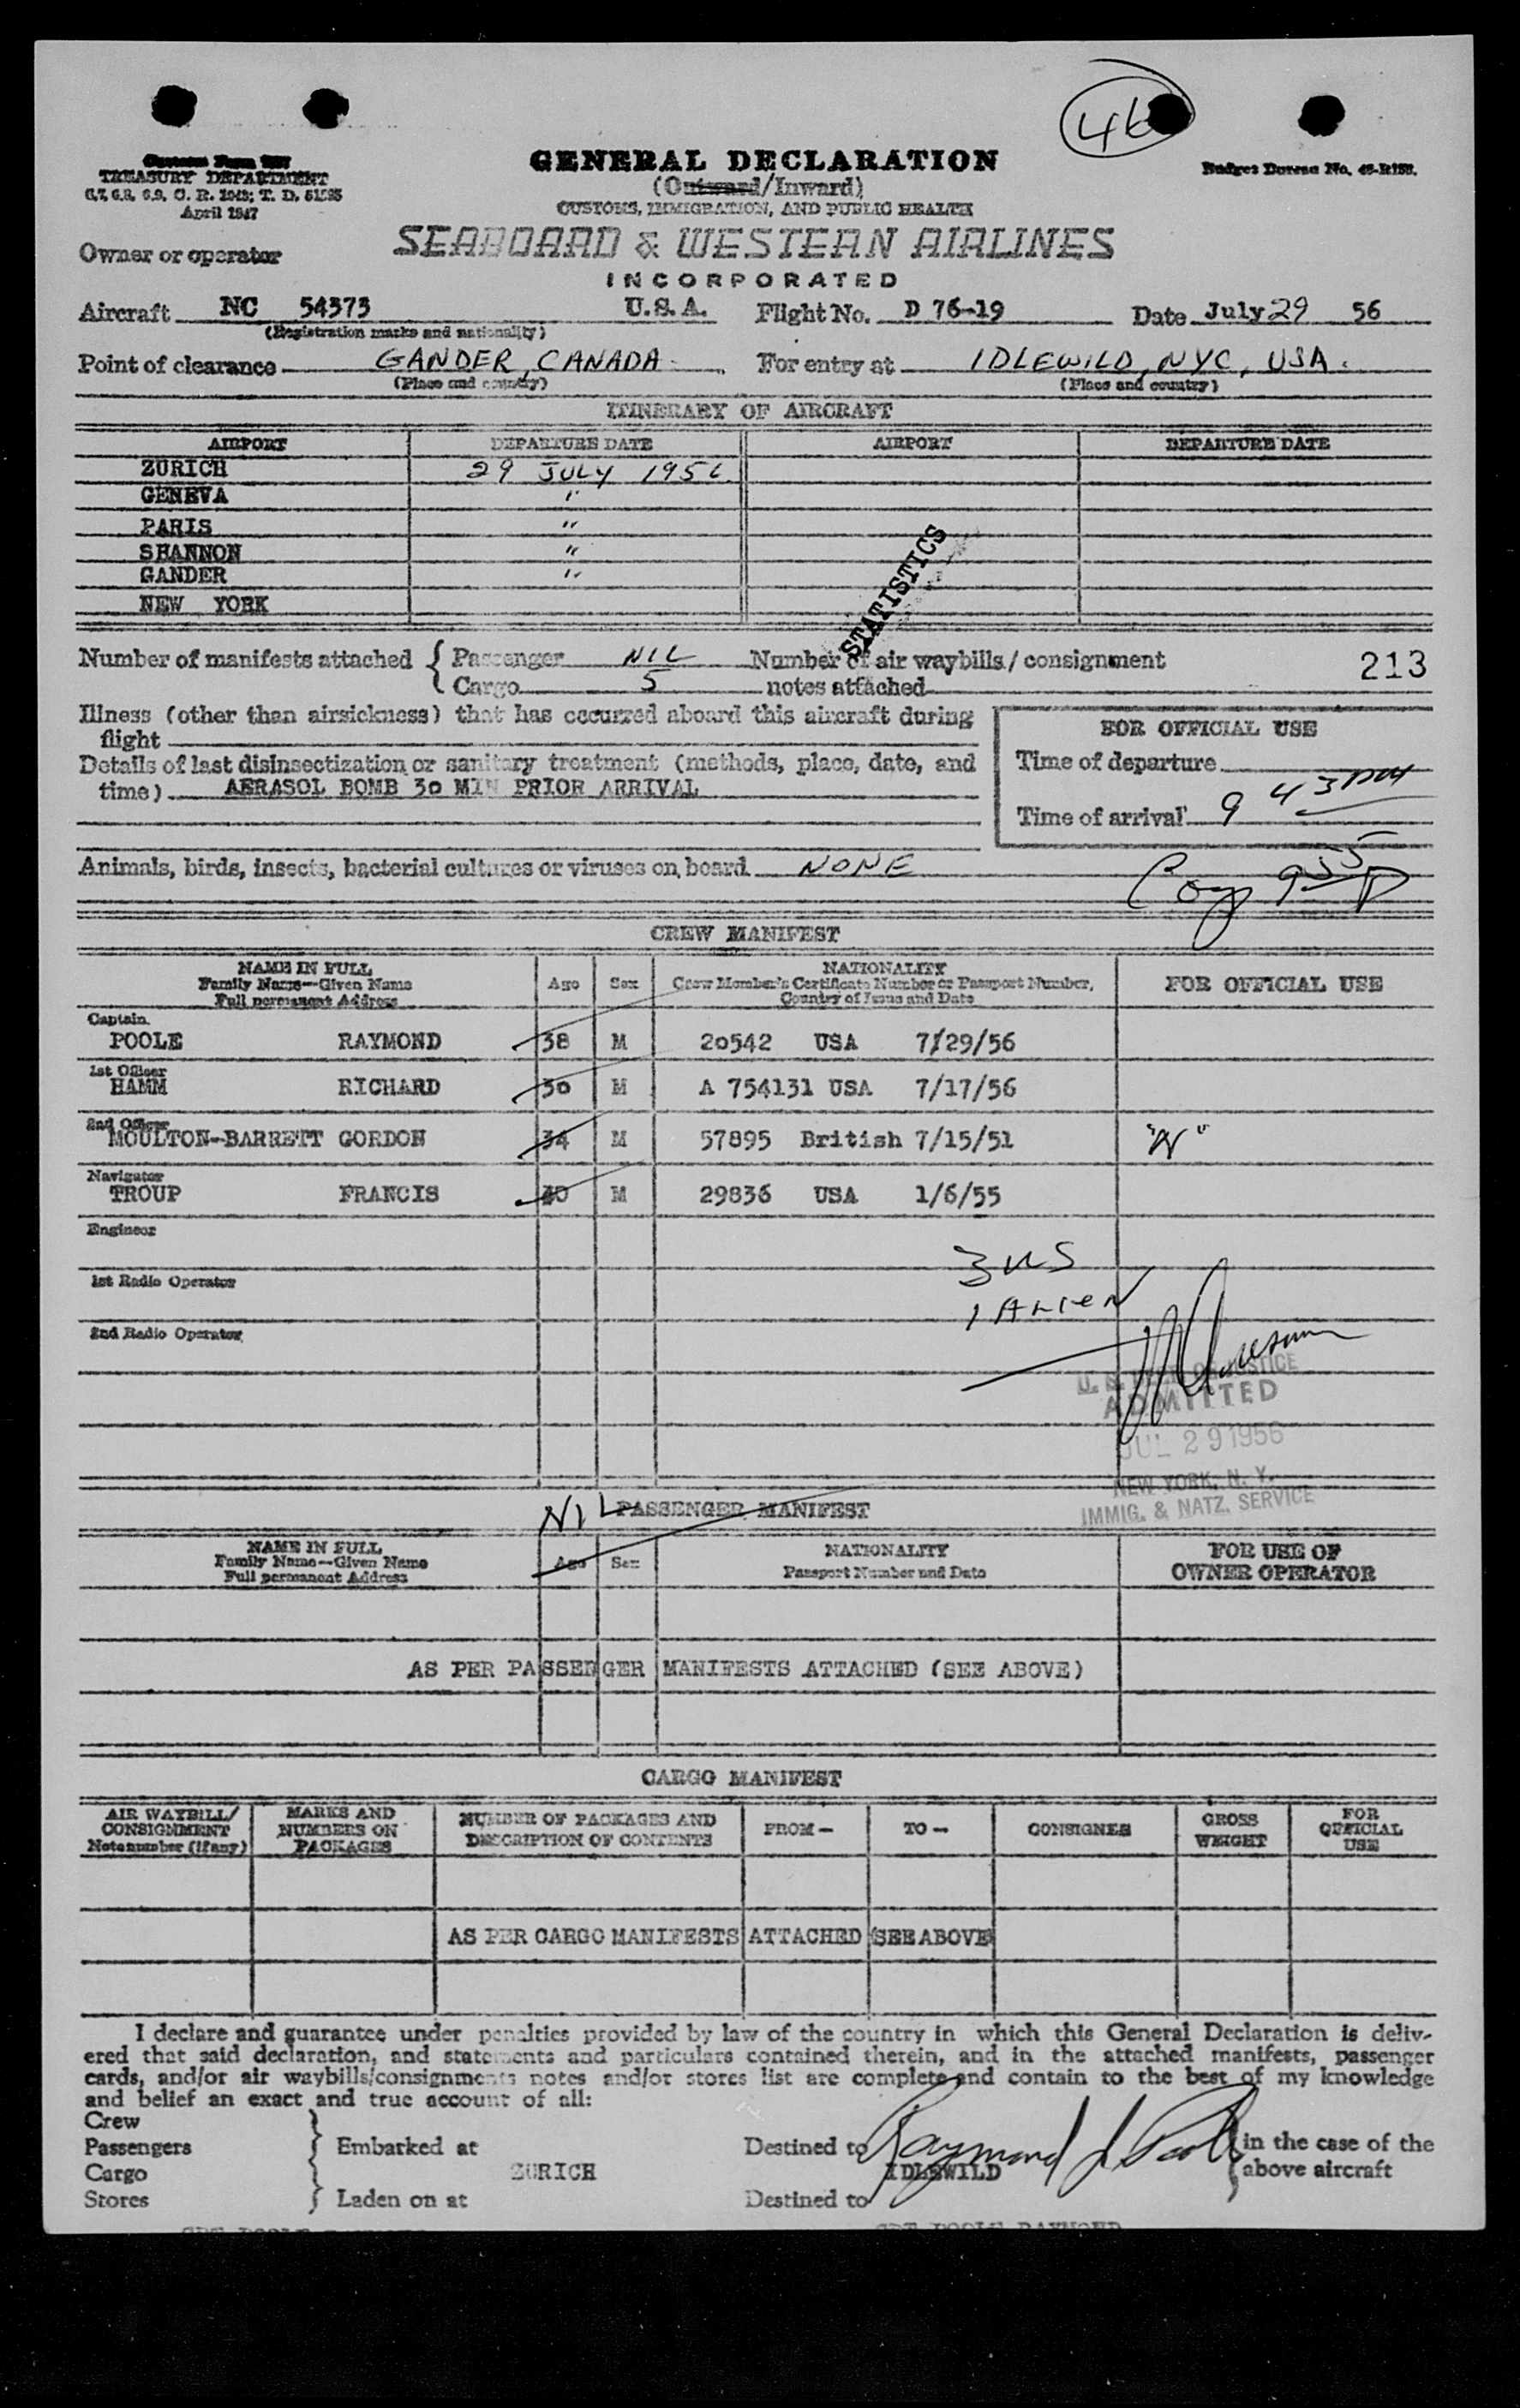 46
TREASURY DEPARTMENT
April 1947
GENERAL DECLARATION
(Outward/Inward)
CUSTOMS, IMMIGRATION, AND PUBLIC HEALTH
Owner or operator
SEABOARD & WESTERN AIRLINES
INCORPORATED
Aircraft NC 54373 U.S.A. Flight No. D 76-19 Date July 29 56
(Registration marks and nationality)
Point of clearance GANDER, CANADA. For entry at IDLEWILD, NYC, USA.
(Place and country) (Place and country)
ITINERARY OF AIRCRAFT
AIRPORT DEPARTURE DATE AIRPORT DEPARTURE DATE
ZURICH 29 JULY 1956
GENEVA "
PARIS "
SHANNON "
GANDER "
NEW YORK
STATISTICS
Number of manifests attached { Passenger NIL Number of air waybills / consignment 213
Cargo 5 notes attached
Illness (other than airsickness) that has occurred aboard this aircraft during
flight
Details of last disinsectization or sanitary treatment (methods, place, date, and
time) AERASOL BOMB 30 MIN PRIOR ARRIVAL
FOR OFFICIAL USE
Time of departure
Time of arrival 9 43 PM
Animals, birds, insects, bacterial cultures or viruses on board NONE
955 P
CREW MANIFEST
NAME IN FULL
Family Name--Given Name
Full permanent Address
Age Sex
NATIONALITY
Crew Member's Certificate Number or Passport Number,
Country of Issue and Date
FOR OFFICIAL USE
Captain
POOLE RAYMOND 38 M 20542 USA 7/29/56
1st Officer
HAMM RICHARD 30 M A 754131 USA 7/17/56
2nd Officer
MOULTON-BARRETT GORDON 34 M 57895 British 7/15/51 "N"
Navigator
TROUP FRANCIS M 29836 USA 1/6/55
Engineer
1st Radio Operator
2nd Radio Operator
3 US
1 ALIEN
U. S. DEPT. OF JUSTICE
ADMITTED
JUL 29 1956
NEW YORK, N. Y.
IMMIG. & NATZ. SERVICE
NIL PASSENGER MANIFEST
NAME IN FULL
Family Name--Given Name
Full permanent Address
Age Sex
NATIONALITY
Passport Number and Date
FOR USE OF
OWNER OPERATOR
AS PER PASSENGER MANIFESTS ATTACHED (SEE ABOVE)
CARGO MANIFEST
AIR WAYBILL/
CONSIGNMENT
Note number (if any)
MARKS AND
NUMBERS ON
PACKAGES
NUMBER OF PACKAGES AND
DESCRIPTION OF CONTENTS
FROM—
TO—
CONSIGNEE
GROSS
WEIGHT
FOR
OFFICIAL
USE
AS PER CARGO MANIFESTS ATTACHED (SEE ABOVE
I declare and guarantee under penalties provided by law of the country in which this General Declaration is deliv-
ered that said declaration, and statements and particulars contained therein, and in the attached manifests, passenger
cards, and/or air waybills/consignments notes and/or stores list are complete and contain to the best of my knowledge
and belief an exact and true account of all:
Crew
Passengers } Embarked at Destined to Raymond J. Poole } in the case of the
Cargo ZURICH IDLEWILD above aircraft
Stores } Laden on at Destined to